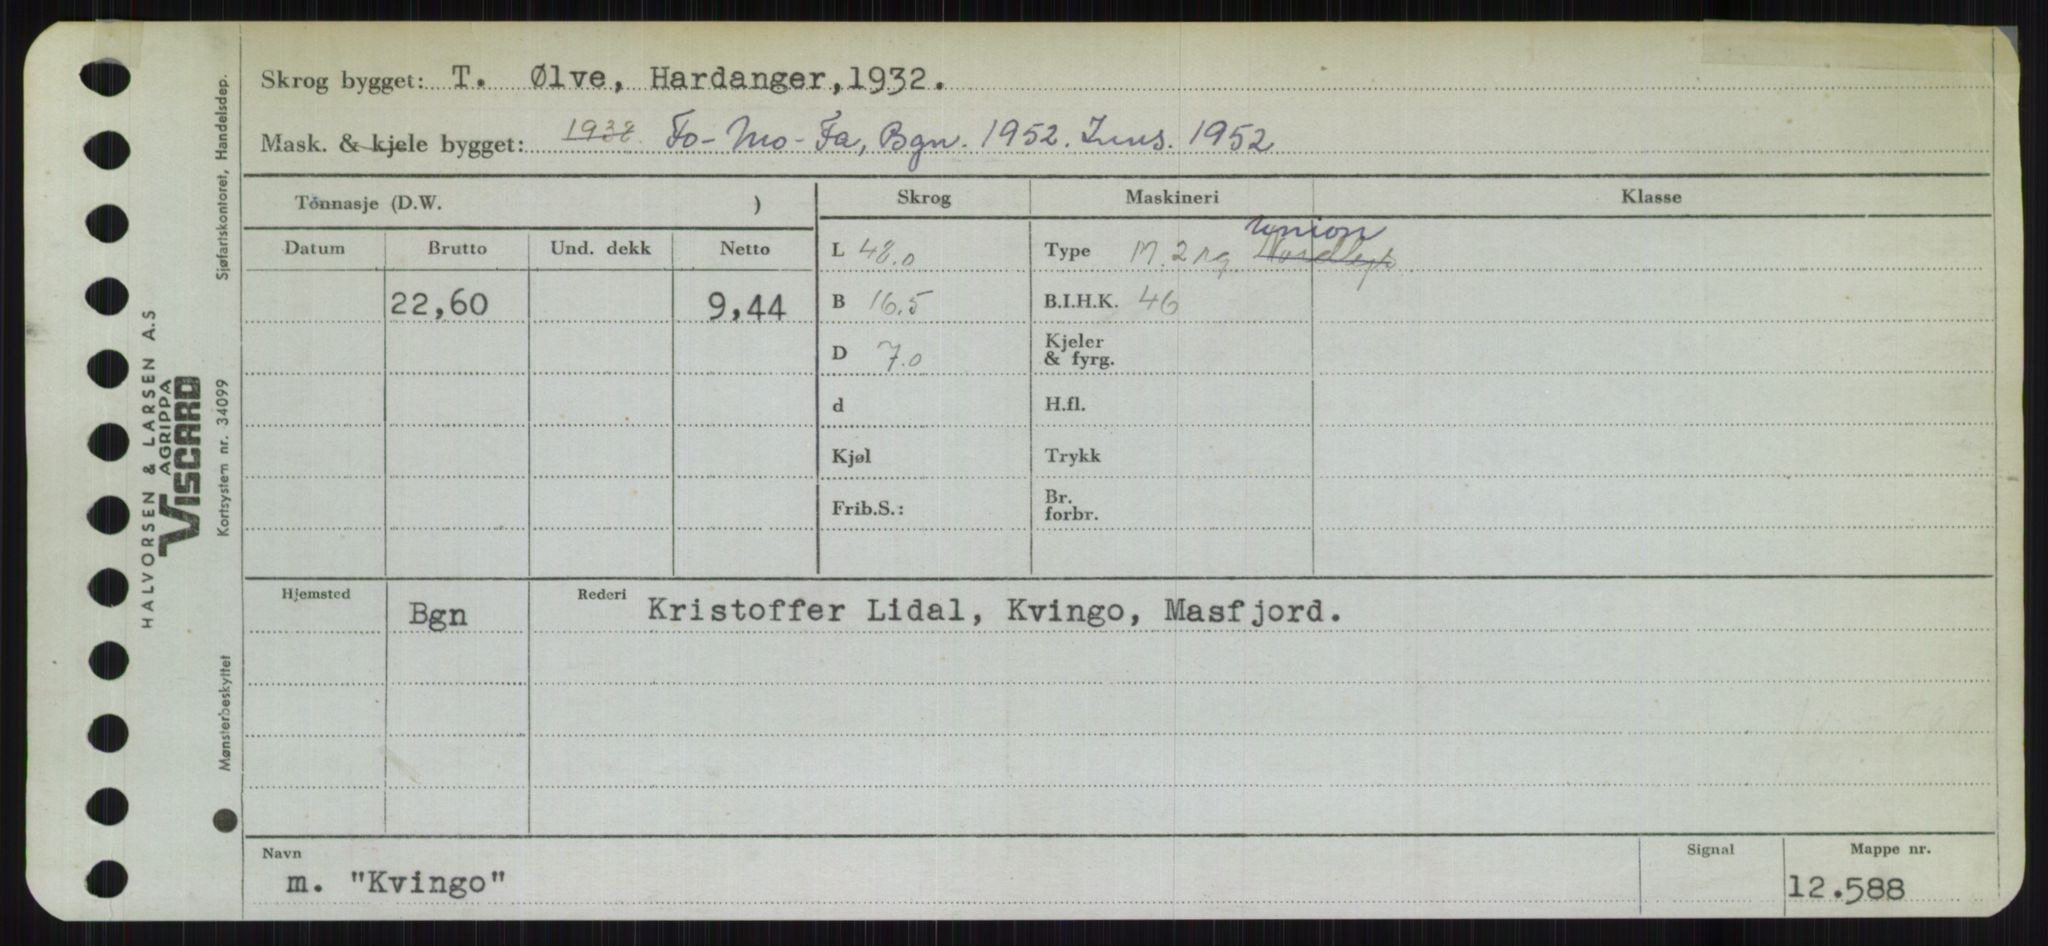 Skrog bygget: T. Ølve, Hardanger, 1932.
Mask. & kjele bygget: 1938. Fo-Mo-Fa, Bgn. 1952. Inns. 1952
Tonnasje (D.W. )
Skrog Maskineri Klasse
Datum Brutto Und. dekk Netto
22,60 9,44
L 48.0
B 16,5
D 7.0
d
Kjøl
Frib.S.:
Union
Type M. 2 sy.
B.I.H.K. 46
Kjeler
& fyrg.
H.fl.
Trykk
Br.
forbr.
Hjemsted Bgn
Rederi Kristoffer Lidal, Kvingo, Masfjord.
Navn
m. "Kvingo"
Signal
Mappe nr.
12.588
HALVORSEN & LARSEN A.S
AGRIPPA
VISCARD
Mønsterbeskyttet Kortsystem nr. 34099 Sjøfartskontoret, Handelsdep.